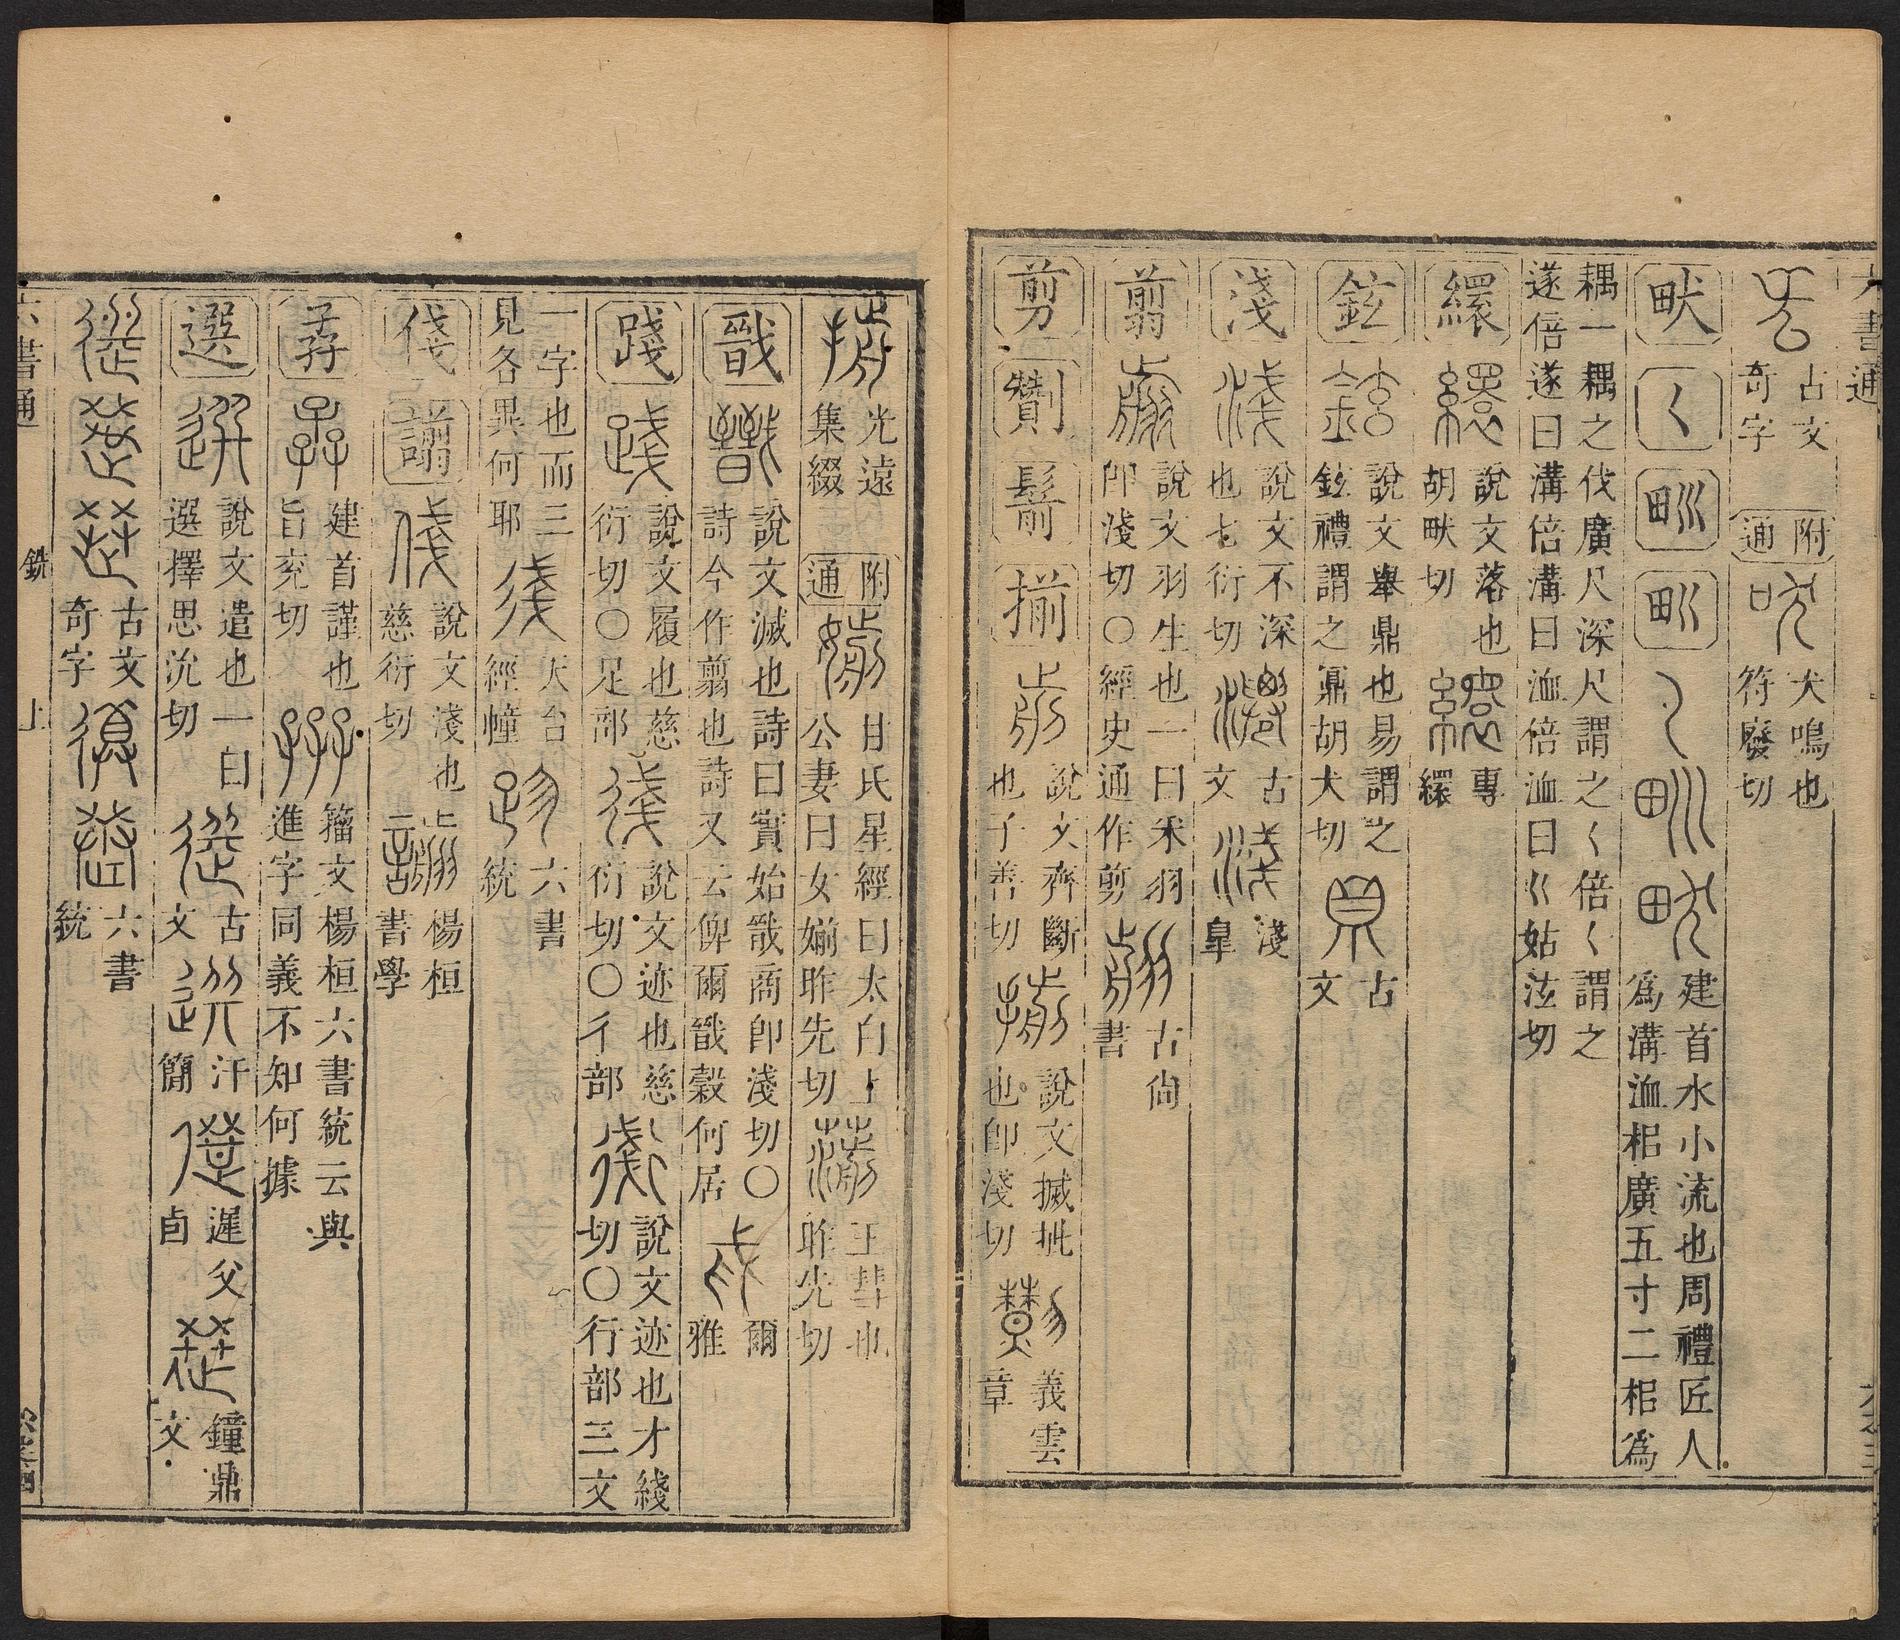 六書通
古文奇字 附通 犬鳴也符廢切
畎 く 甽 𤰕 建首水小流也周禮匠人爲溝洫枱廣五寸二枱爲
耦一耦之伐廣尺深尺謂之く倍く謂之
遂倍遂曰溝倍溝曰洫倍洫曰巜姑泫切
繯 說文落也胡畎切 專繯
鉉 說文舉鼎也易謂之鉉禮謂之鼏胡犬切 古文
淺 說文不深也七衍切 古文 淺皐
翦 說文羽生也一曰矢羽即淺切〇經史通作剪 古尙書
剪 劗 鬋 揃 說文齊斷也子善切 說文搣批也即淺切 義雲章
光遠集綴 附通 甘氏星經曰太白上公妻曰女媊昨先切 王彗也昨先切
戩 說文滅也詩曰實始戩商即淺切〇詩今作翦也詩又云俾爾戩穀何居 爾雅
踐 說文履也慈衍切〇足部 說文迹也慈衍切〇彳部 說文迹也才綫切〇行部三文
一字也而三見各異何耶 天台經幢 六書統
俴 謭 說文淺也慈衍切 楊桓書學
孨 建首謹也旨兖切 籀文楊桓六書統云與進字同義不知何據
選 說文遣也一曰選擇思沇切 古文 汗簡 遲父卣 鐘鼎文
古文奇字 六書統
六書通 銑 上